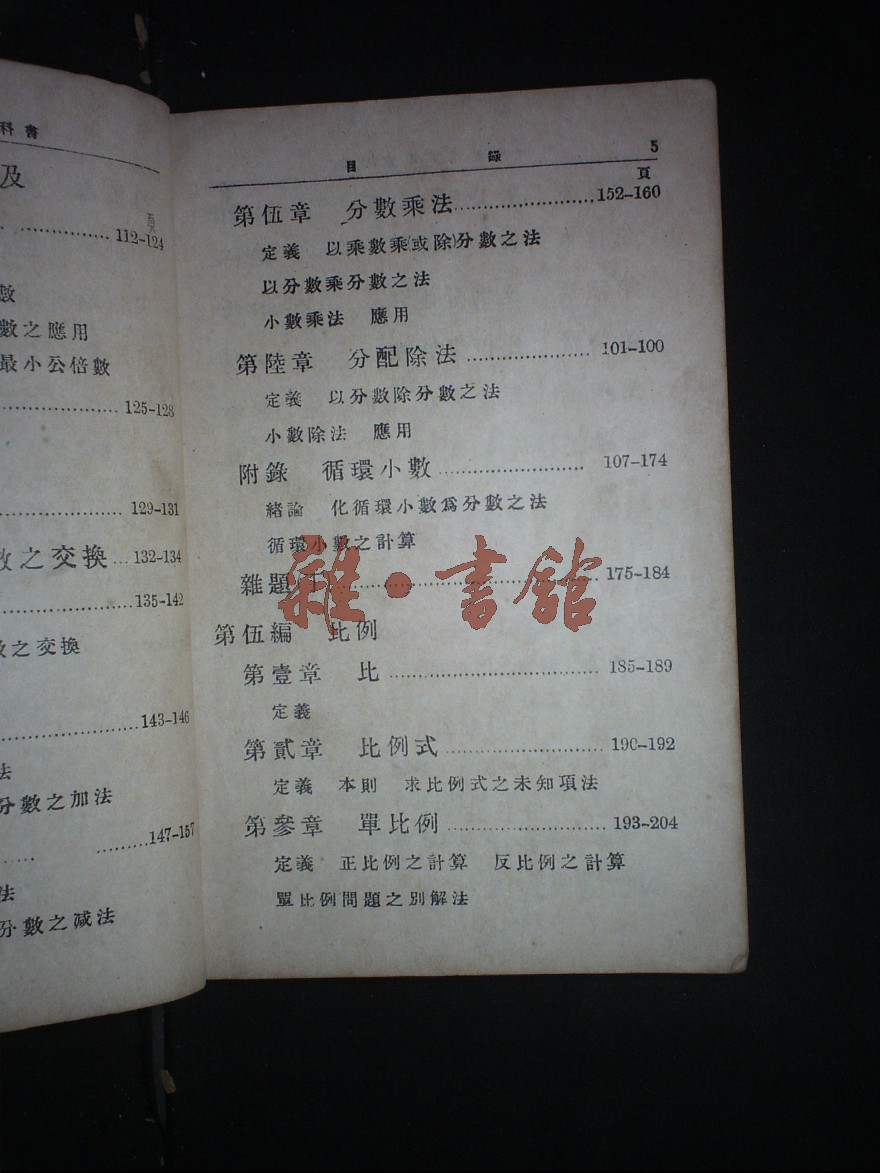 科書
及
頁
112-124
數
數之應用
最小公倍數
125-128
129-131
數之交換 132-134
135-142
數之交換
143-146
法
分數之加法
147-157
法
分數之減法
目錄 5
頁
第伍章 分數乘法 152-160
定義 以乘數乘(或除)分數之法
以分數乘分數之法
小數乘法 應用
第陸章 分配除法 101-100
定義 以分數除分數之法
小數除法 應用
附錄 循環小數 107-174
緒論 化循環小數爲分數之法
循環小數之計算
雜題 175-184
第伍編 比例
第壹章 比 185-189
定義
第貳章 比例式 190-192
定義 本則 求比例式之未知項法
第參章 單比例 193-204
定義 正比例之計算 反比例之計算
單比例問題之別解法
雜·書館